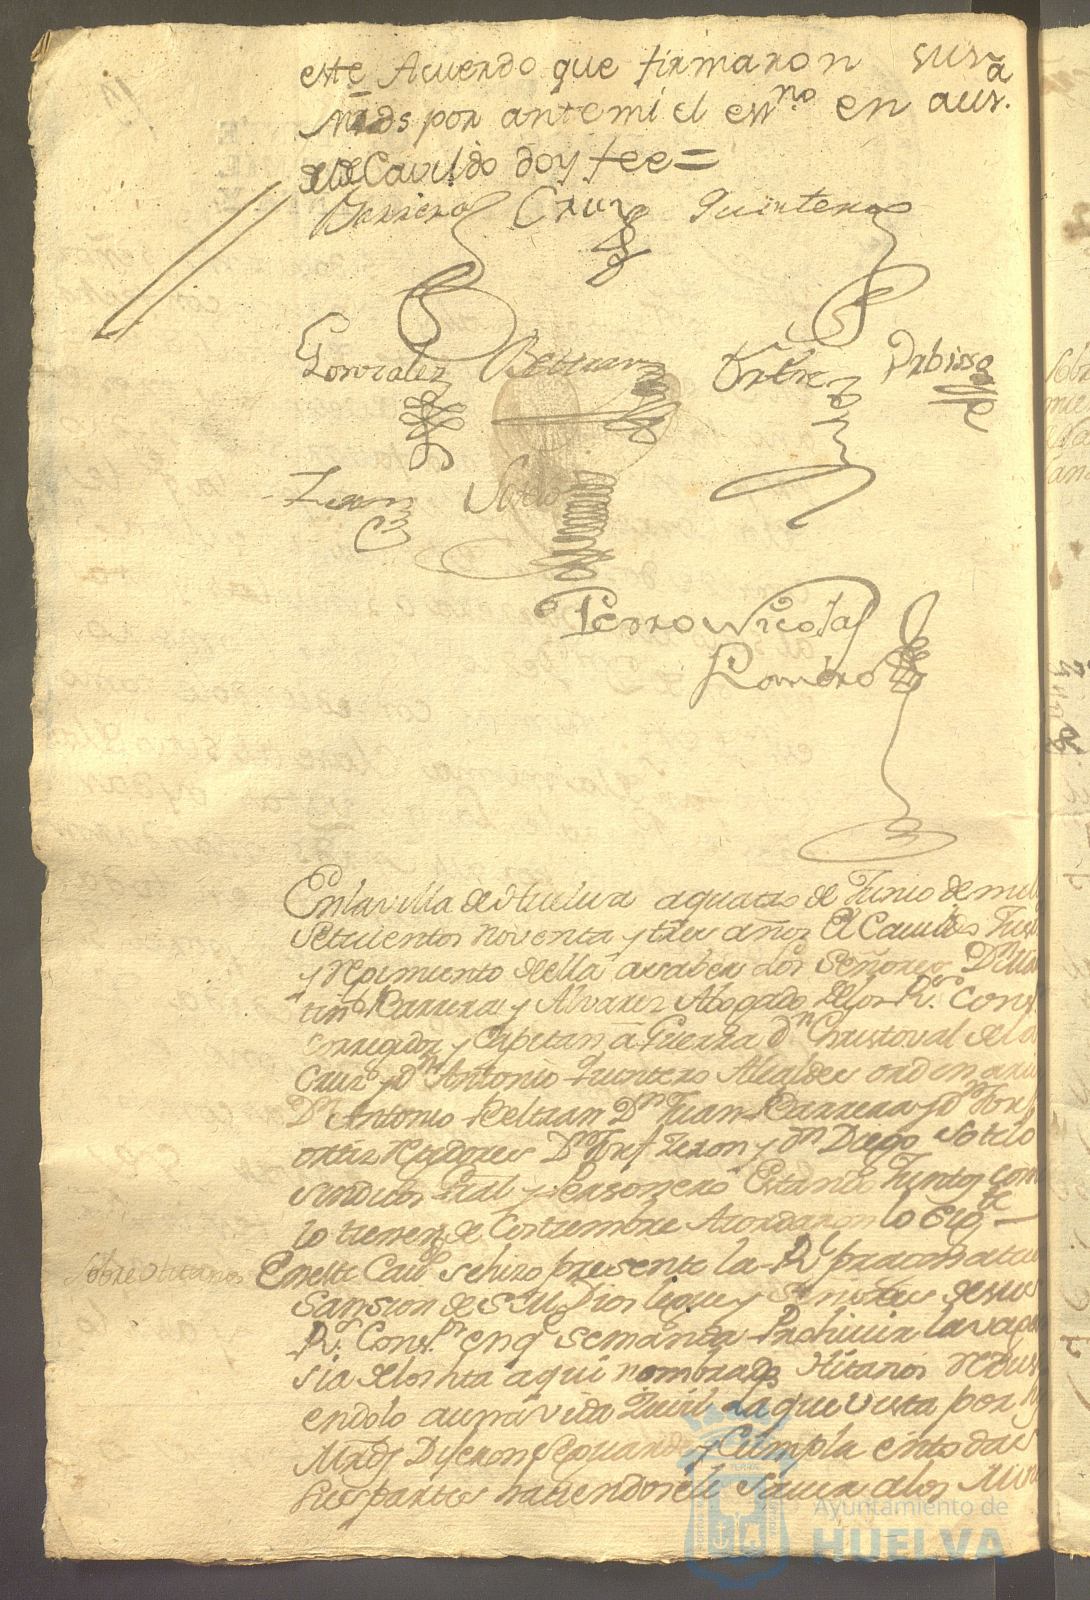 este Acuerdo que firmaron sus
Mrds por ante mi el essno en aus.a
de Cavildo doy fee =
Barrera Cruz Quintero
Gonzalez Beltran Ortiz
Zeron Sotelo
Pedro Nicolas
Romero
En la villa de Huelva a quatro de Junio de mil
Setecientos noventa y tres años El Cavildo Just
y Regimiento de ella a saber los Señores Dn
tin Barrera y Alvarez Abogado de los Rs. Cons
Corregidor y Capitan a Guerra dn Christoval de la
Cruz y dn Antonio Quintero Alcaldes ordinari
Dn Antonio Beltran Dn Juan Barrera y dn Jose
Ortiz Regidores Dn Josef Zeron y dn Diego Sotelo
Sindicos Gral y Personero Estando Juntos como
lo tienen de Costumbre Acordaron lo Sigte
Sobre Hitanos
En este Cavdo se hizo presente la Rl pracmatica
Sansion de S. M. Dios legue y Señores de su
Rl Consº en q se manda Prohivir la vagan
sia de los hta aqui nombrados Hitanos redus
endolo a una vida Zivil la que vista por
Mrds Dijeron se guarde y Cumpla en todas
sus partes haciendosele Saver a los
Ayuntamiento de
HUELVA